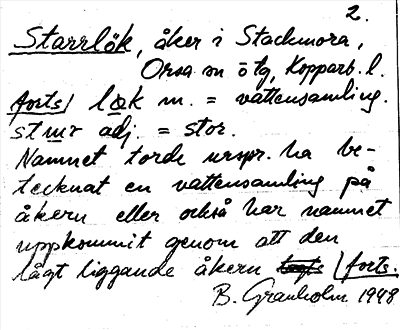 2.
Starrlök, åker i Stackmora,
Orsa sn ö tg, Kopparb. l.
forts/ lök m. = vattensamling.
stmr adj. = stor.
Namnet torde urspr. ha be-
tecknat en vattensamling på
åkern eller också har namnet
uppkommit genom att den
lågt liggande åkern /forts.
B. Granholm 1948